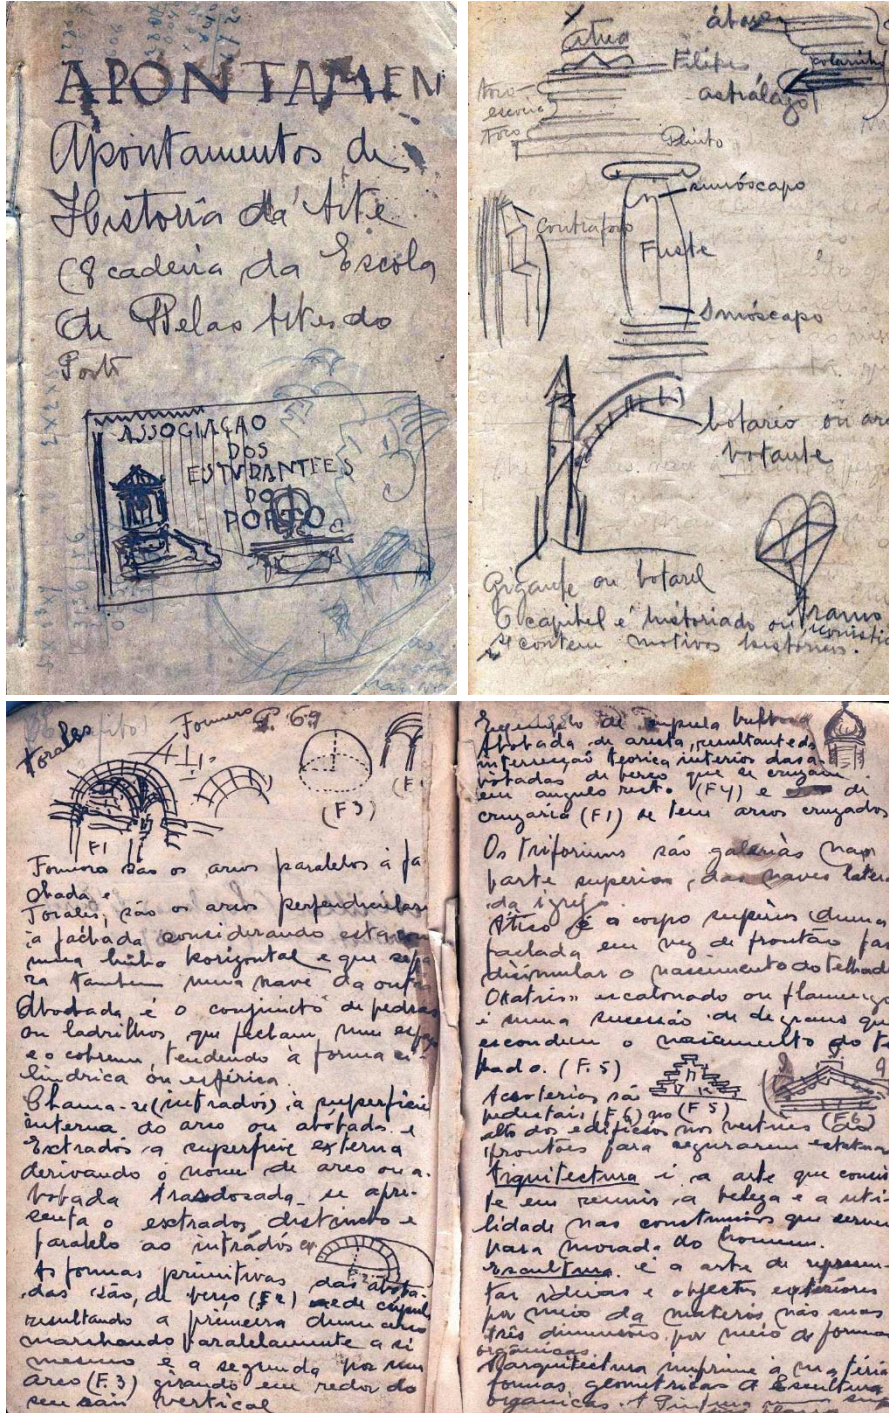 APONTAMEN
Apontamentos de
Historia da Arte
(8 cadeira da Escola
de Belas Artes do
Porto
ASSOCIAÇÃO
DOS
ESTUDANTEES
DO
PORTO
ático
Filetes
astrálago
toro
escocia
toro
Plinto
sumóscapo
contraforte
Fuste
Imóscapo
botareo ou arco
botante
Gigante ou botarel
Tramo
O capitel é historiado ou iconistico
se contem motivos históricos.
Torales
Formeros
P. 69
(F3)
F1
Formeros são os arcos paralelos á fa
chada e
Torales, são os arcos perpendiculares
á fachada considerando esta com
uma linha horizontal e que sepa
ra tambem uma nave da outra
Abobada é o conjuncto de pedras
ou ladrilhos que fecham um espaço
e o cobrem, tendendo á forma ci-
lindrica ou esférica.
Chama-se (intrados) á superficie
interna do arco ou abóbada e
Extrados a superficie externa
derivando o nome de arco ou a-
bobada trasdosada se apre-
senta o extrados distincto e
paralelo ao intrádos
As formas primitivas das abóba-
das são, de berço (F2) e de cúpula
resultando a primeira dum arco
marchando paralelamente a si
mesmo e a segunda por um
arco (F.3) girando em redor do
seu eixo vertical
Exemplo de cupula bulbosa
Abobada de aresta, resultante da
interseção teorica interior das a-
bobadas de berço que se cruzam
em angulo recto (F4) e de
cruzaria (F1) se tem arcos cruzados
Os triforiuns são galerias nas
parte superior, das naves latera
da igreja
Atico é o corpo superior duma
fachada em vez de frontão para
disimular o nascimento do telhado
O "atrio" escalonado ou flamengo
é numa sucessão de degraus que
escondem o nascimento do te
lhado. (F.5)
Acroterios são
pedestais (F.6) no (F5)
(F6)
alto dos edificios nos vertices dos
frontões para segurarem estatuas
Arquitectura é a arte que consis
te em reunir a beleza e a uti-
lidade nas construcões que servem
para morada do homem.
Escultura é a arte de represen-
tar ideias e objectos exteriores
por meio da materia nas suas
três dimensões por meio de formas
orgânicas
A arquitectura imprime a materia
formas geometricas a Escultura
organicas. A Pintura